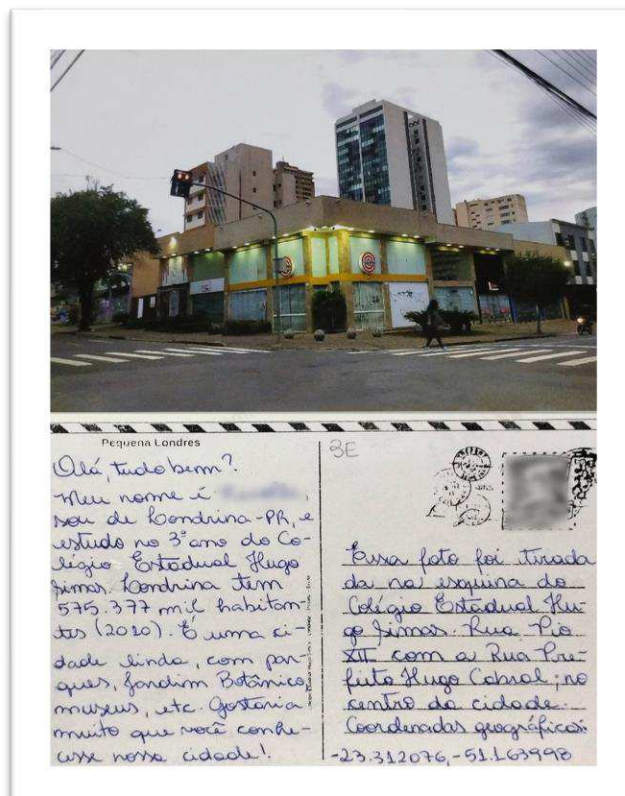 Pequena Londres
Olá, tudo bem?
Meu nome é
sou de Londrina-PR, e
estudo no 3º ano do Co-
légio Estadual Hugo
Simas. Londrina tem
575.377 mil habitan-
tes (2020). É uma ci
dade linda, com par-
ques, Jardim Botânico,
museus, etc. Gostaria
muito que você conhe-
cesse nossa cidade!
3E
Essa foto foi tirada
da na esquina do
Colégio Estadual Hu-
go Simas. Rua Pio
XII com a Rua Pre-
feito Hugo Cabral; no
centro da cidade.
Coordenadas geográficas:
-23.312076, -51.163998